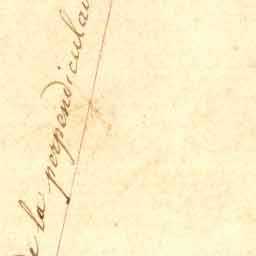 de la perpendiculai